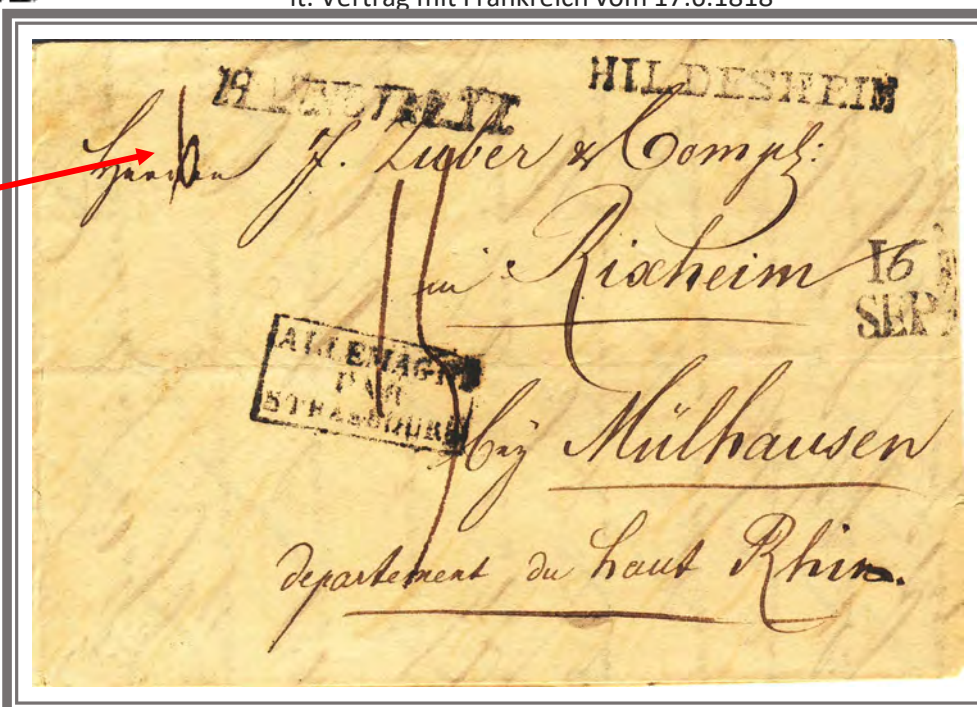 lt. Vertrag mit Frankreich vom 17.6.1818
HILDESHEIM
Herren J. Zuber & Compl:
in Rixheim
16
SEP
ALLEMAGNE
PAR
STRASBOURG
bey Mülhausen
departement du haut Rhin.